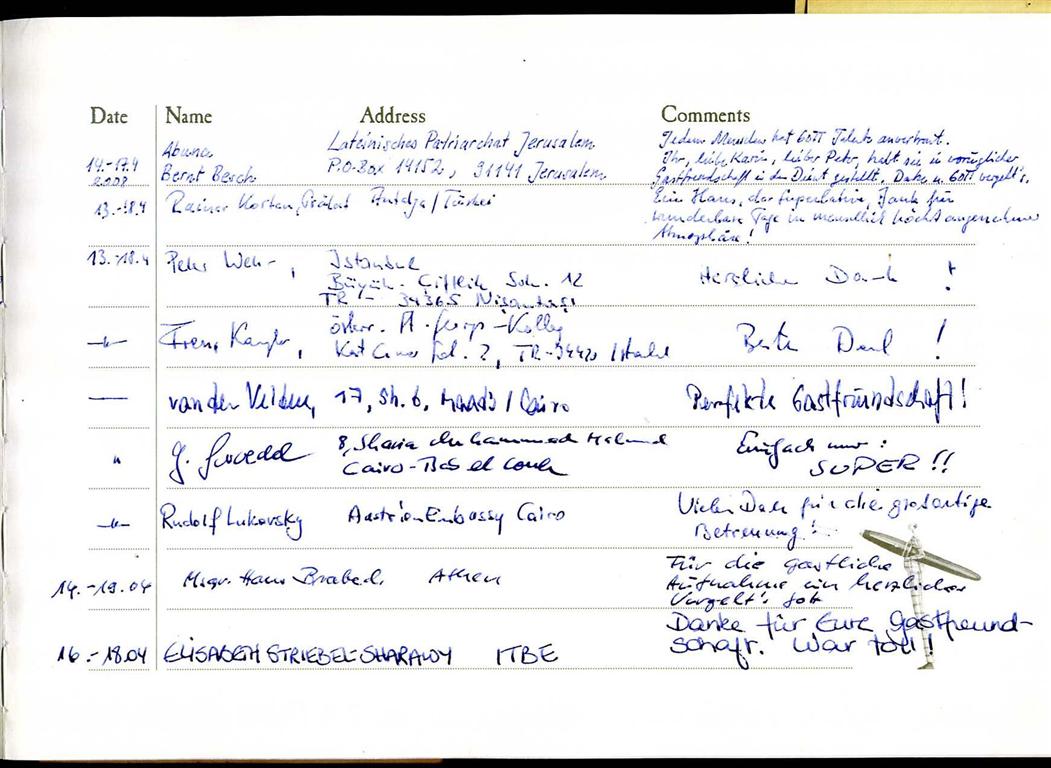 Date Name Address Comments
Abuna Lateinisches Patriarchat Jerusalem Jedem Menschen hat GOTT Talente anvertraut.
14.-17.4 Ihr, liebe Karin, lieber Peter, habt sie in vorzüglicher
2008 Bernt Besch P.O-Box 14152, 91141 Jerusalem Gastfreundschaft in den Dienst gestellt. Danke u. GOTT vergelt's.
13.-18.4 Rainer Korten, Prälat Antalya/Türkei Ein Haus, der Superlative, Dank für
wunderbare Tage in menschlich höchst angenehmer
Atmosphäre!
13.-18.4 Peter, Istanbul Herzlichen Dank !
Büyük. Çiftlik Sok. 12
TR - 34365 Nişantaşı
-"- Franz Kangler, Österr. St. Georgs-Kolleg Besten Dank !
Kart Çınar Sok. 2, TR-34420 Istanbul
van der Velden, 17, Sh. 6, Maadi / Cairo Perfekte Gastfreundschaft!
" 8, Sharia Muhammed Mahmud Einfach nur :
Cairo - Bab el Louk SUPER !!
-"- Rudolf Lukavsky Austrian Embassy Cairo Vielen Dank für die großartige
Betreuung!
14.-19.04 Msgr. Hans Athen Für die gastliche
Aufnahme ein herzliches
Vergelt's Gott
16.-18.04 ELISABETH STRIEBEL-SHARAWY ITBE Danke für Eure Gastfreund-
schaft. War toll!